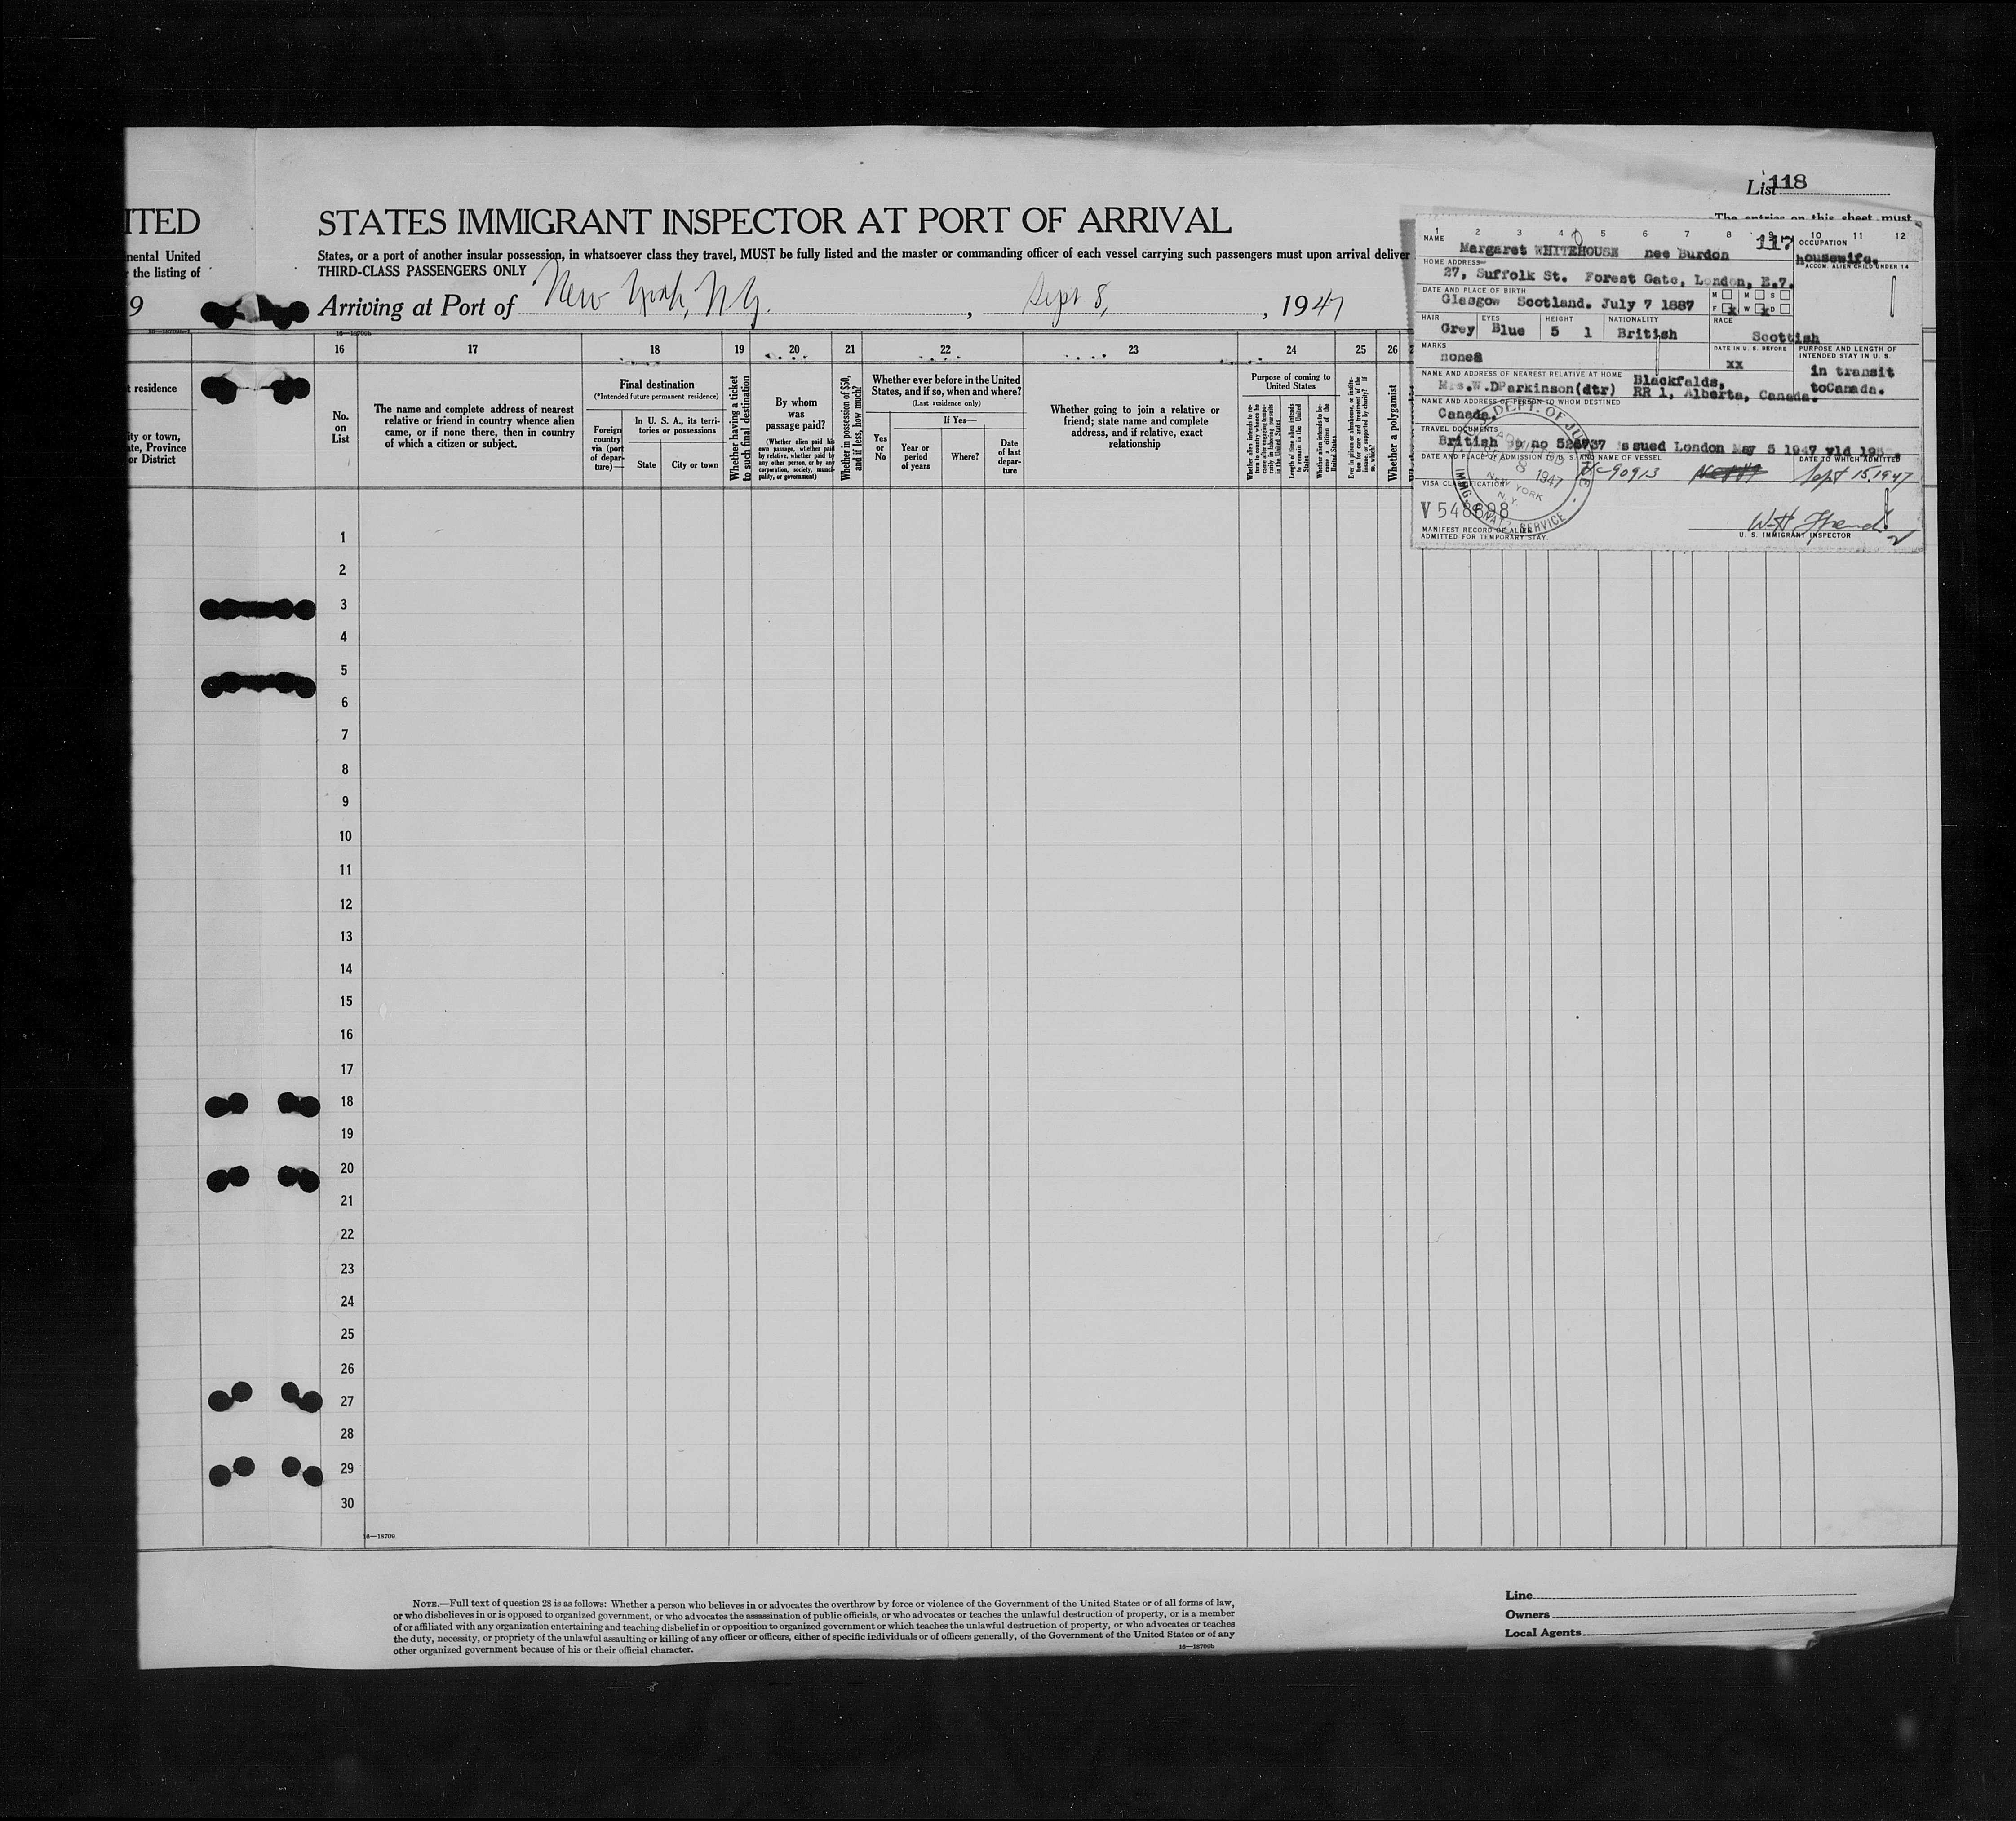 List 118
The entries on this sheet must
ITED STATES IMMIGRANT INSPECTOR AT PORT OF ARRIVAL
nental United
the listing of
9
States, or a port of another insular possession, in whatsoever class they travel, MUST be fully listed and the master or commanding officer of each vessel carrying such passengers must upon arrival deliver
THIRD-CLASS PASSENGERS ONLY
Arriving at Port of New York, N.Y. , Sept 8, , 1947
16 17 18 19 20 21 22 23 24 25 26
residence
ity or town,
ate, Province
or District
No.
on
List
The name and complete address of nearest
relative or friend in country whence alien
came, or if none there, then in country
of which a citizen or subject.
Final destination
(*Intended future permanent residence)
Foreign
country
via (port
of depar-
ture)—
In U. S. A., its terri-
tories or possessions
State City or town
Whether having a ticket
to such final destination
By whom
was
passage paid?
(Whether alien paid his
own passage, whether paid
by relative, whether paid by
any other person, or by any
corporation, society, munici-
pality, or government)
Whether in possession of $50,
and if less, how much?
Whether ever before in the United
States, and if so, when and where?
(Last residence only)
If Yes—
Yes
or
No
Year or
period
of years
Where?
Date
of last
depar-
ture
Whether going to join a relative or
friend; state name and complete
address, and if relative, exact
relationship
Purpose of coming to
United States
Whether alien intends to re-
turn to country whence he
came after engaging tempo-
rarily in laboring pursuits
in the United States
Length of time alien intends
to remain in the United
States
Whether alien intends to be-
come a citizen of the
United States
Ever in prison or almshouse, or institu-
tion for care and treatment of the
insane, or supported by charity? If
so, which?
Whether a polygamist
1 2 3 4 5 6 7 8 9 10 11 12
117
NAME
Margaret WHITEHOUSE nee Burdon
OCCUPATION
housewife.
HOME ADDRESS
27, Suffolk St. Forest Gate, London, E.7.
ACCOM. ALIEN CHILD UNDER 14
DATE AND PLACE OF BIRTH
Glasgow Scotland. July 7 1887
M M S
F x W x D
HAIR EYES HEIGHT NATIONALITY RACE
Grey Blue 5 1 British Scottish
MARKS
DATE IN U. S. BEFORE
xx
PURPOSE AND LENGTH OF
INTENDED STAY IN U. S.
in transit
toCanada.
NAME AND ADDRESS OF NEAREST RELATIVE AT HOME
Mrs.W.DParkinson(dtr) Blackfalds,
RR 1, Alberta, Canada.
NAME AND ADDRESS OF PERSON TO WHOM DESTINED
Canada,
TRAVEL DOCUMENTS
British pp no issued London May 5 1947 vld
DATE AND PLACE OF ADMISSION TO U. S. AND NAME OF VESSEL
DATE TO WHICH ADMITTED
90913 Sept 15, 1947
DEPT. OF JUSTICE
8 1947
NEW YORK
N. Y.
IMMG. NATZ. SERVICE
VISA CLASSIFICATION
V 548698
MANIFEST RECORD OF ALIEN
ADMITTED FOR TEMPORARY STAY.
U. S. IMMIGRANT INSPECTOR
1
2
3
4
5
6
7
8
9
10
11
12
13
14
15
16
17
18
19
20
21
22
23
24
25
26
27
28
29
30
16—18709
NOTE.—Full text of question 28 is as follows: Whether a person who believes in or advocates the overthrow by force or violence of the Government of the United States or of all forms of law,
or who disbelieves in or is opposed to organized government, or who advocates the assassination of public officials, or who advocates or teaches the unlawful destruction of property, or is a member
of or affiliated with any organization entertaining and teaching disbelief in or opposition to organized government or which teaches the unlawful destruction of property, or who advocates or teaches
the duty, necessity, or propriety of the unlawful assaulting or killing of any officer or officers, either of specific individuals or of officers generally, of the Government of the United States or of any
other organized government because of his or their official character.
16—18709b
Line
Owners
Local Agents